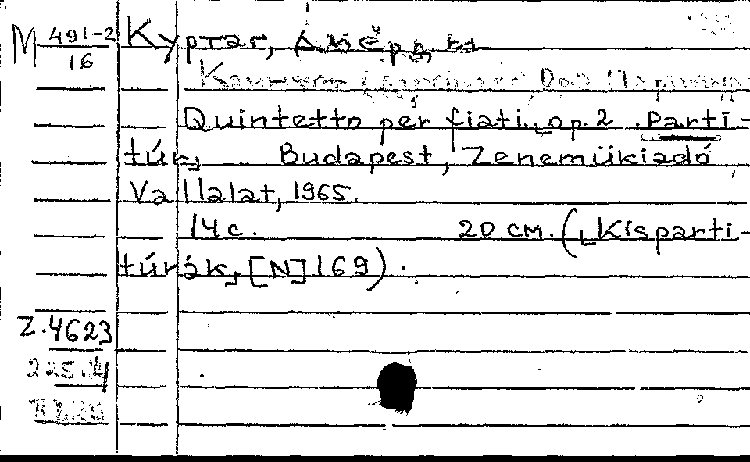 М 491-2
16
Куртаг, Дьёрдь
Quintetto per fiati, op. 2. Parti-
túra, Budapest, Zeneműkiadó
Vallalat, 1965.
14 с. 20 см. (Kisparti-
túrák, [N] 169).
Z.4623